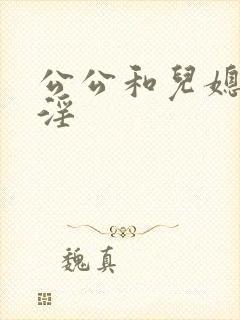 公公和兒媳
淫
魏真